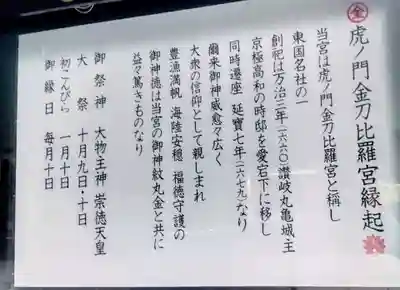 金
虎ノ門金刀比羅宮縁起
当宮は虎ノ門金刀比羅宮と稱し
東国名社の一
創祀は万治三年(一六六〇)讃岐丸亀城主
京極高和の時邸を愛宕下に移し
同時遷座 延寶七年(一六七九)なり
爾来御神威愈々広く
大衆の信仰として親しまれ
豊漁満帆 海陸安穏 福徳守護の
御神徳は当宮の御神紋丸金と共に
益々篤きものなり
御祭神 大物主神 崇徳天皇
大祭 十月九日・十日
初こんぴら 一月十日
御縁日 毎月十日